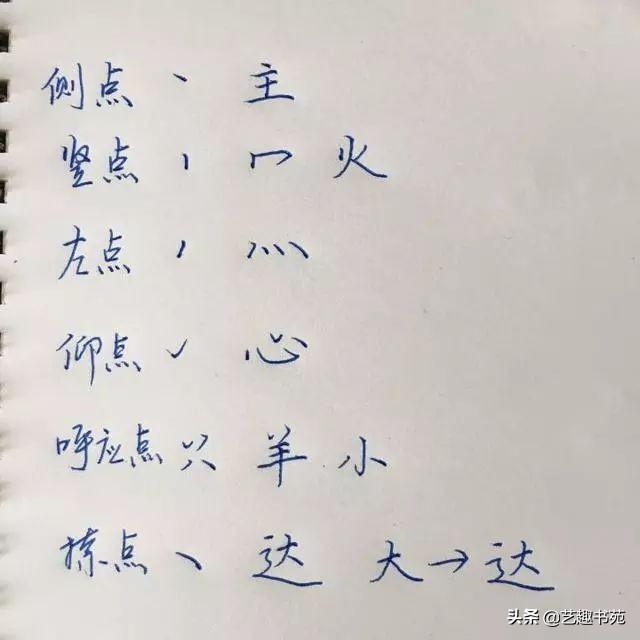 侧点 丶 主
竖点 丨 冖 火
左点 丿 灬
仰点 ㇀ 心
呼应点 丷 八 羊 小
捺点 ㇏ 达 大→达
头条 @艺趣书苑